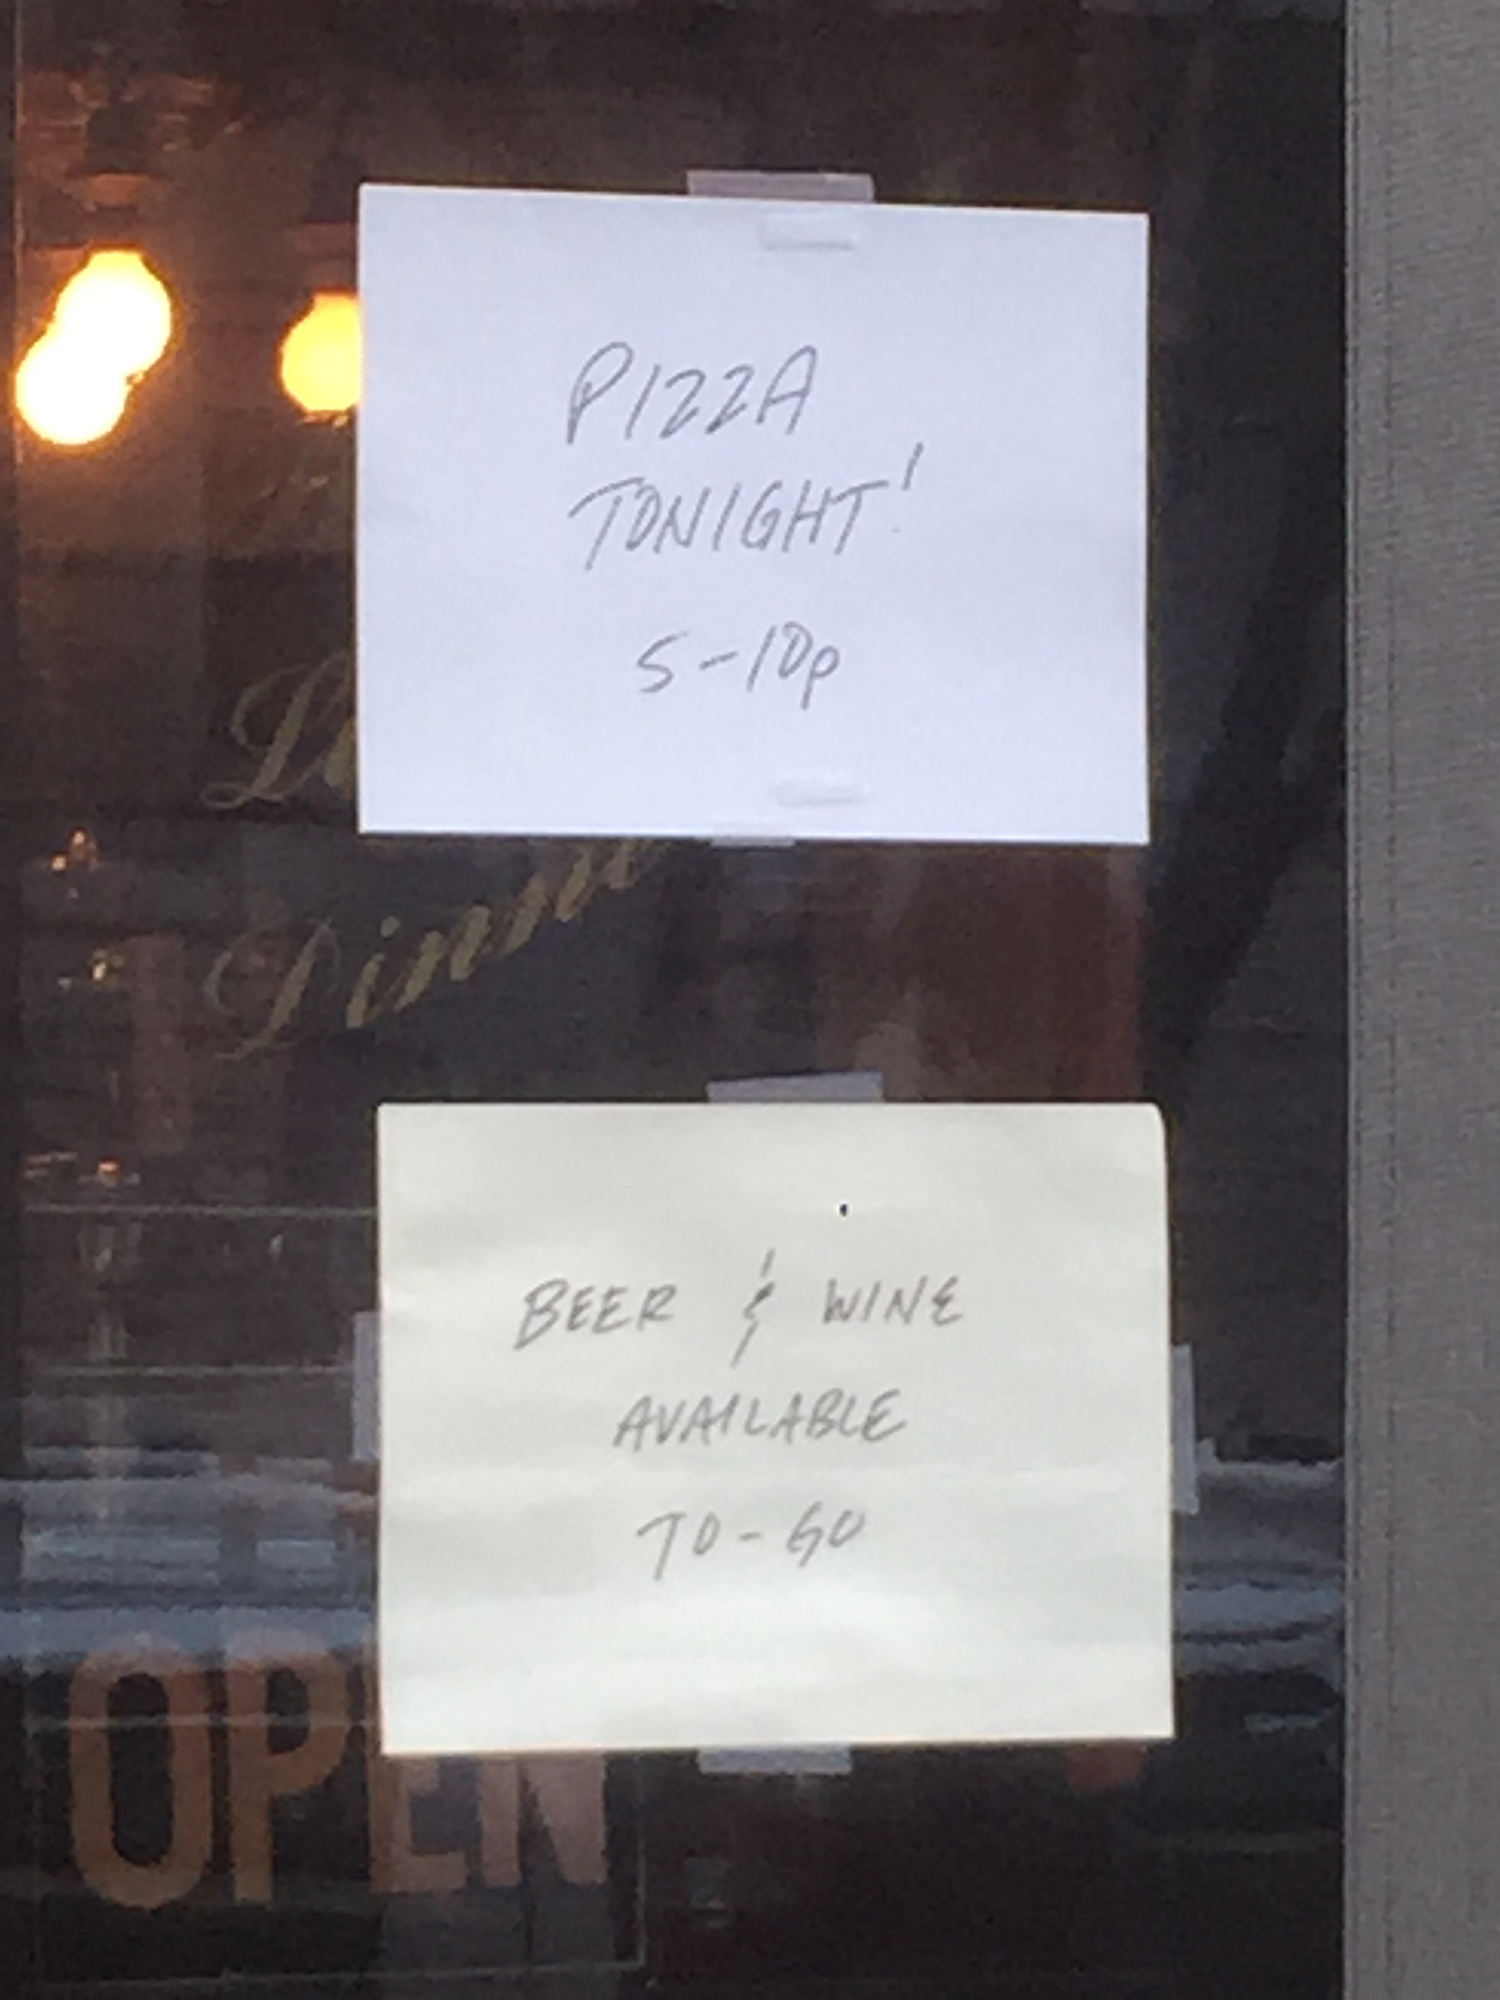 PIZZA
TONIGHT!
5-10p
BEER & WINE
AVAILABLE
TO-GO
OPEN